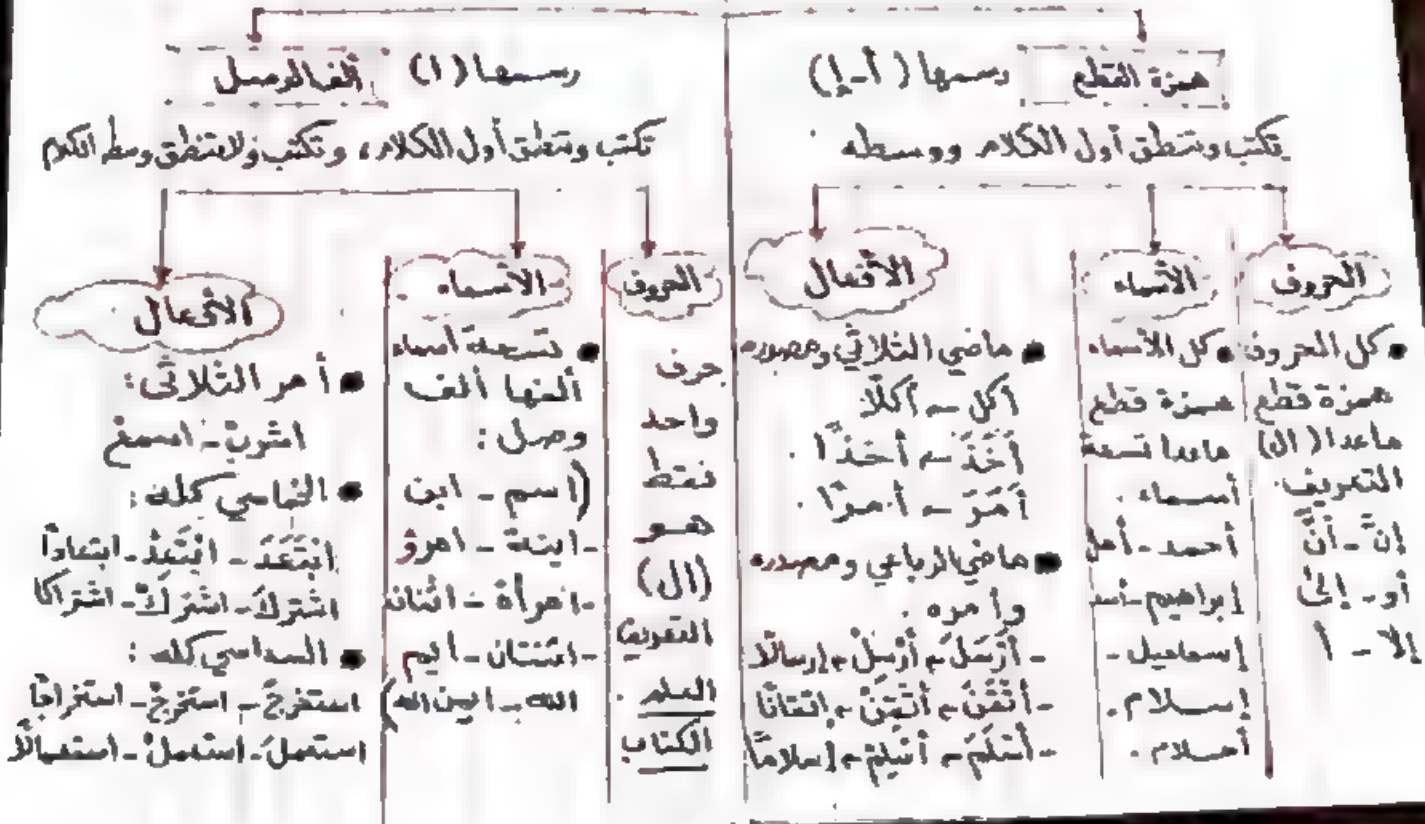 همزة القطع رسمها (أ-إ)
تكتب وتنطق أول الكلام ووسطه
الحروف
• كل الحروف
همزة قطع
ماعدا (ال)
التعريف.
إنَّ - أنَّ
أو - إلى
إلا - أ
الأسماء
• كل الأسماء
همزة قطع
ماعدا تسعة
أسماء.
أحمد - أمل
إبراهيم - أسد
إسماعيل -
إسلام.
أحلام.
الأفعال
• ماضي الثلاثي ومصدره
أكل - أكلًا
أَخَذَ - أخذًا.
أَمَرَ - أمرًا.
• ماضي الرباعي ومصدره
وأمره.
- أَرْسَلَ - أَرْسِلْ - إرسالًا
- أَتْقَنَ - أَتْقِنْ - إتقانًا
- أَسْلَمَ - أَسْلِمْ - إسلامًا
ألف الوصل رسمها (ا)
تكتب وتنطق أول الكلام، وتكتب ولا تنطق وسط الكلام
الحروف
حرف
واحد
فقط
هو
(ال)
التعريف
العلم.
الكتاب
الأسماء
• تسعة أسماء
ألفها ألف
وصل:
(اسم - ابن
- ابنة - امرؤ
- امرأة - اثنان
- اثنتان - ايم
الله - ايمن الله)
الأفعال
• أمر الثلاثي:
اشربْ - اسمعْ
• الخماسي كله:
ابْتَعَدَ - ابْتَعِدْ - ابتعادًا
اشْتركَ - اشْتركْ - اشتراكًا
• السداسي كله:
استخرجَ - استخرجْ - استخراجًا
استعملَ - استعملْ - استعمالًا